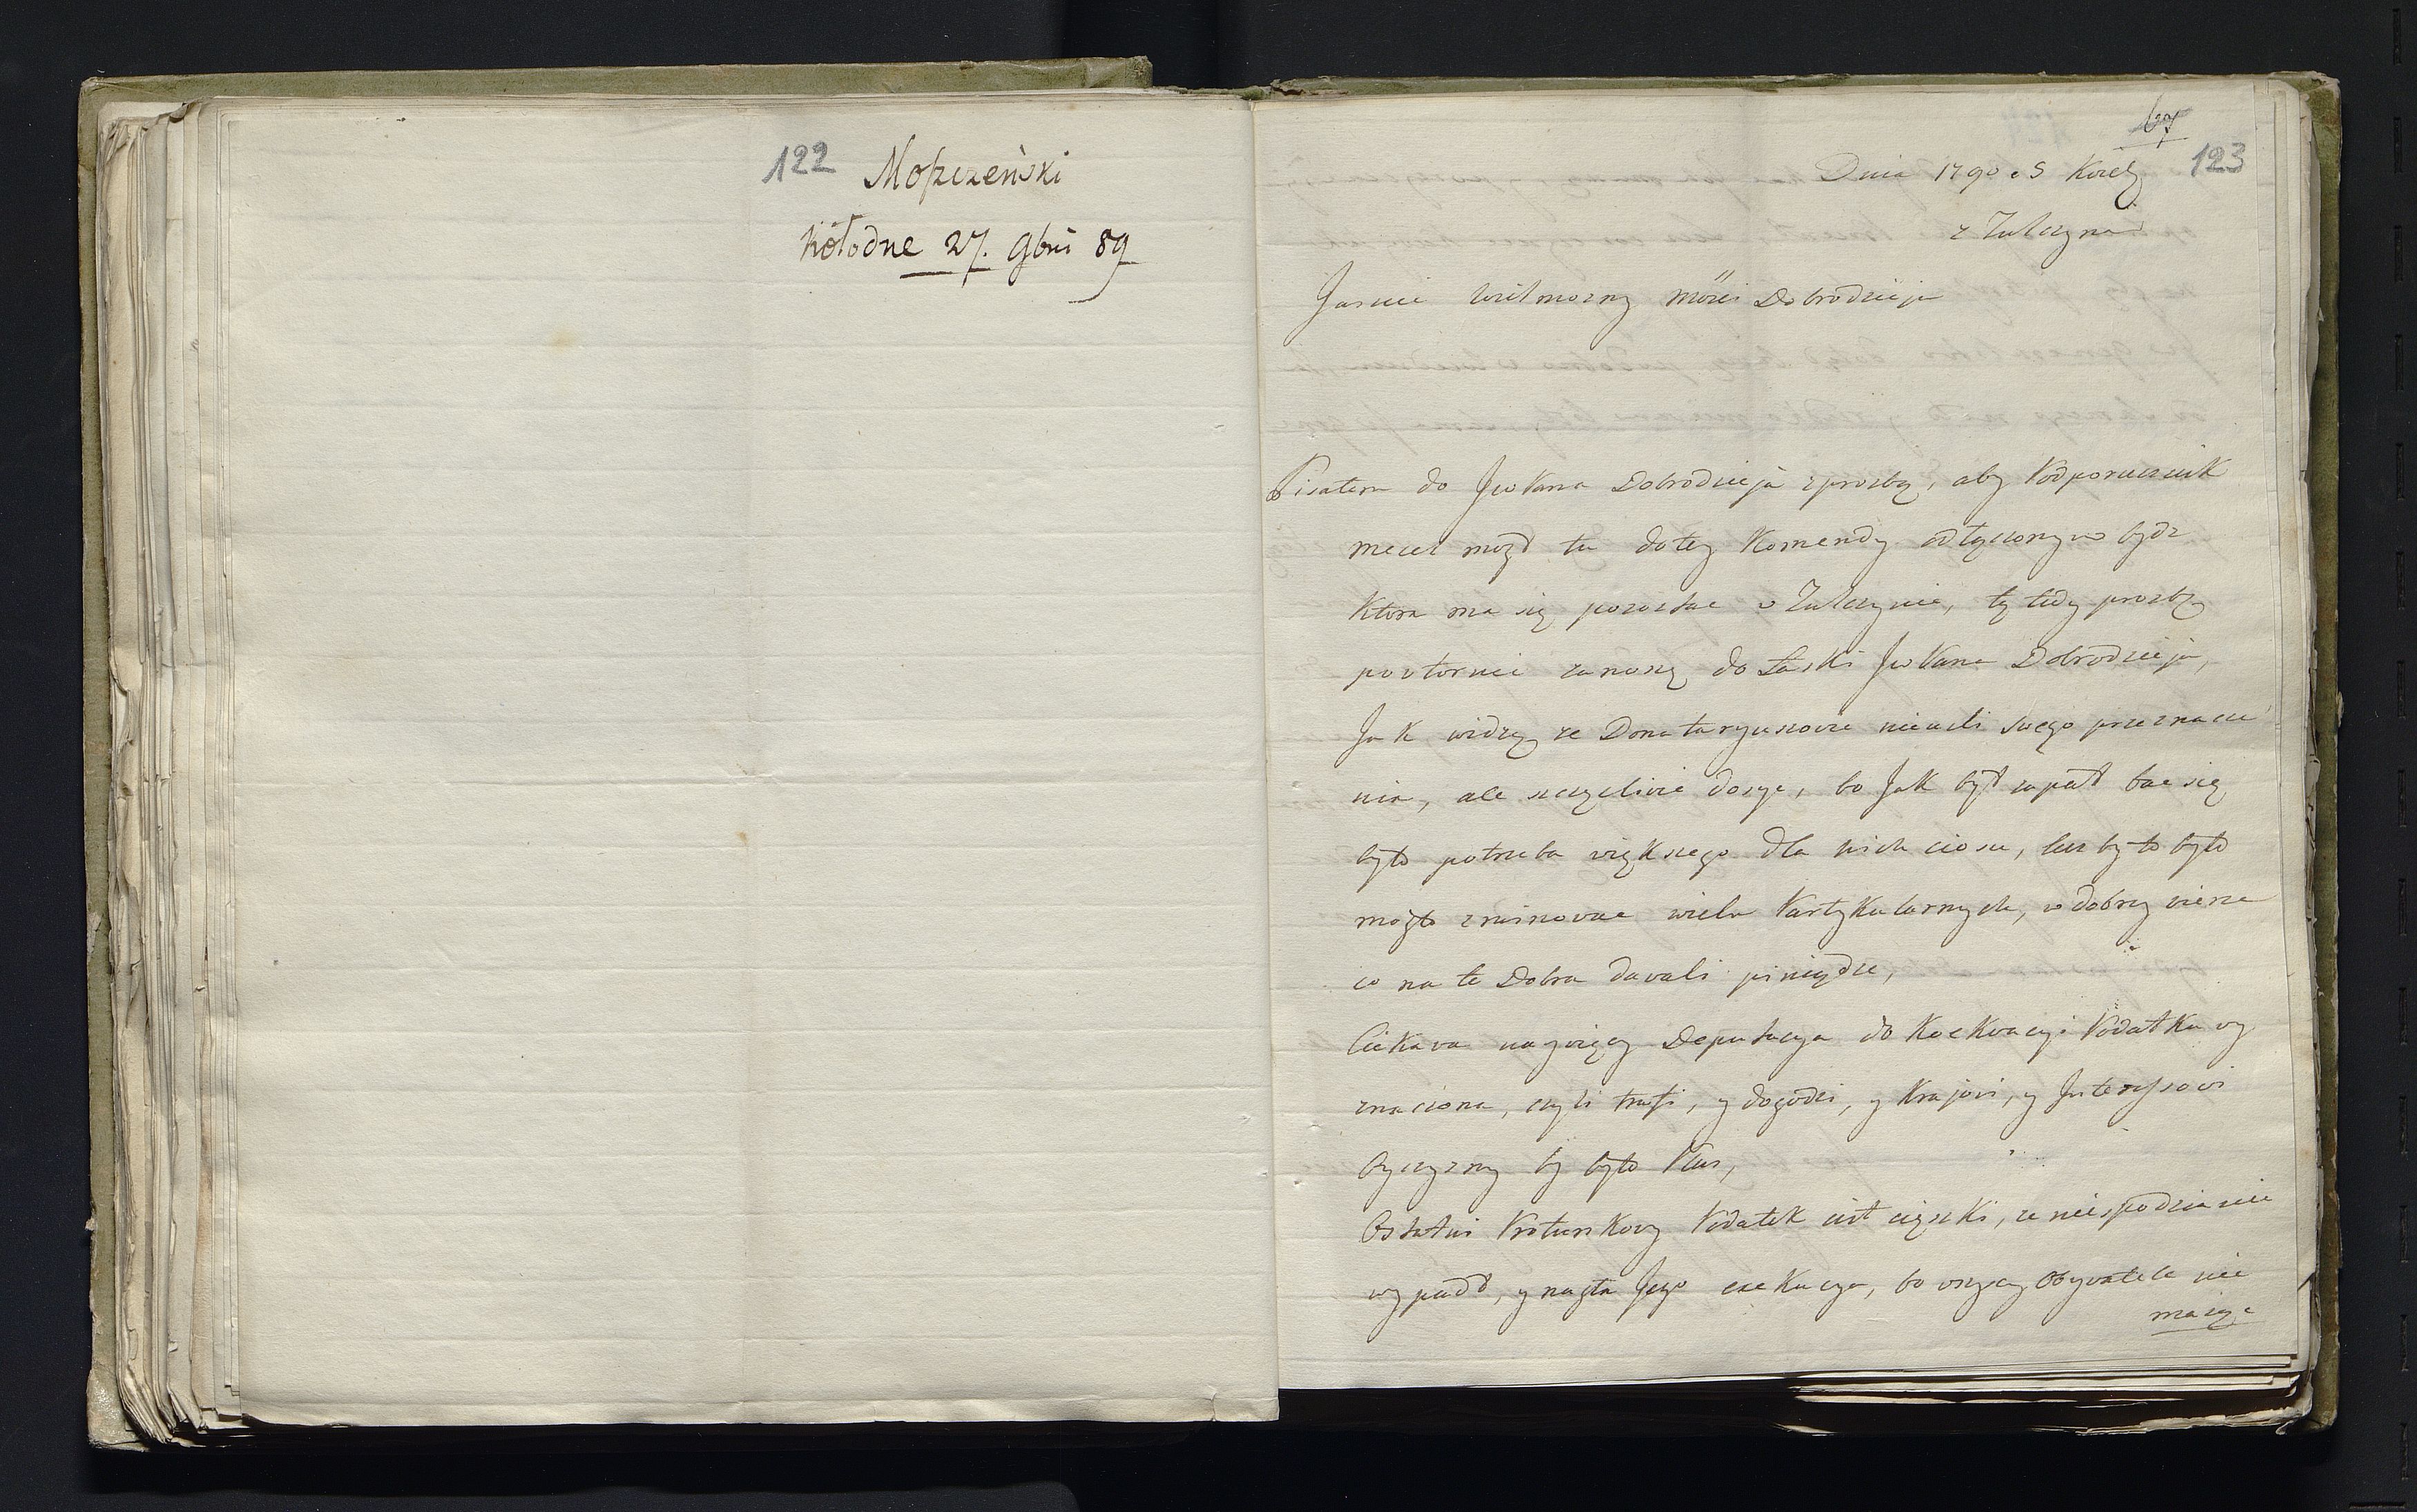 122 Moszczeński
Kołodne 27. 9bris 89
67
123
Dnia 1790 5
z Tulczyna
Jasnie Wielmozny Mości Dobrodzieju
Pisałem do Jw Pana Dobrodzieja z prozbą, aby Podporucznik
mecel mogł tu do tey Komendy odłączonym bydz
Ktora ma się pozostac w Tulczynie, tę tedy prozbę
powtornie zanoszę do Łaski Jw Pana Dobrodzieja,
Jak widzę ze Donataryuszowie nieuszli swego przeznacze
nia, ale szczęsliwie dosyc, bo Jak był zapał bac się
było potrzeba większego dla nich ciosu, lecz by to było
mogło zruinowac wielu Partykularnych, w dobrey wierze
co na te Dobra dawali pieniądze,
Ciekawa naywięcy Deputacya do Koekwacyi Podatku wy
znaczona, czyli trafi, y dogodzi, y Krajowi, y Interessowi
Oyczyzny by było Plus,
Ostatni Podatek iest cięszki, ze niespodzianie
wypadł, y nagła Jego exekucya, bo wszyscy Obywatele nie
maiąc